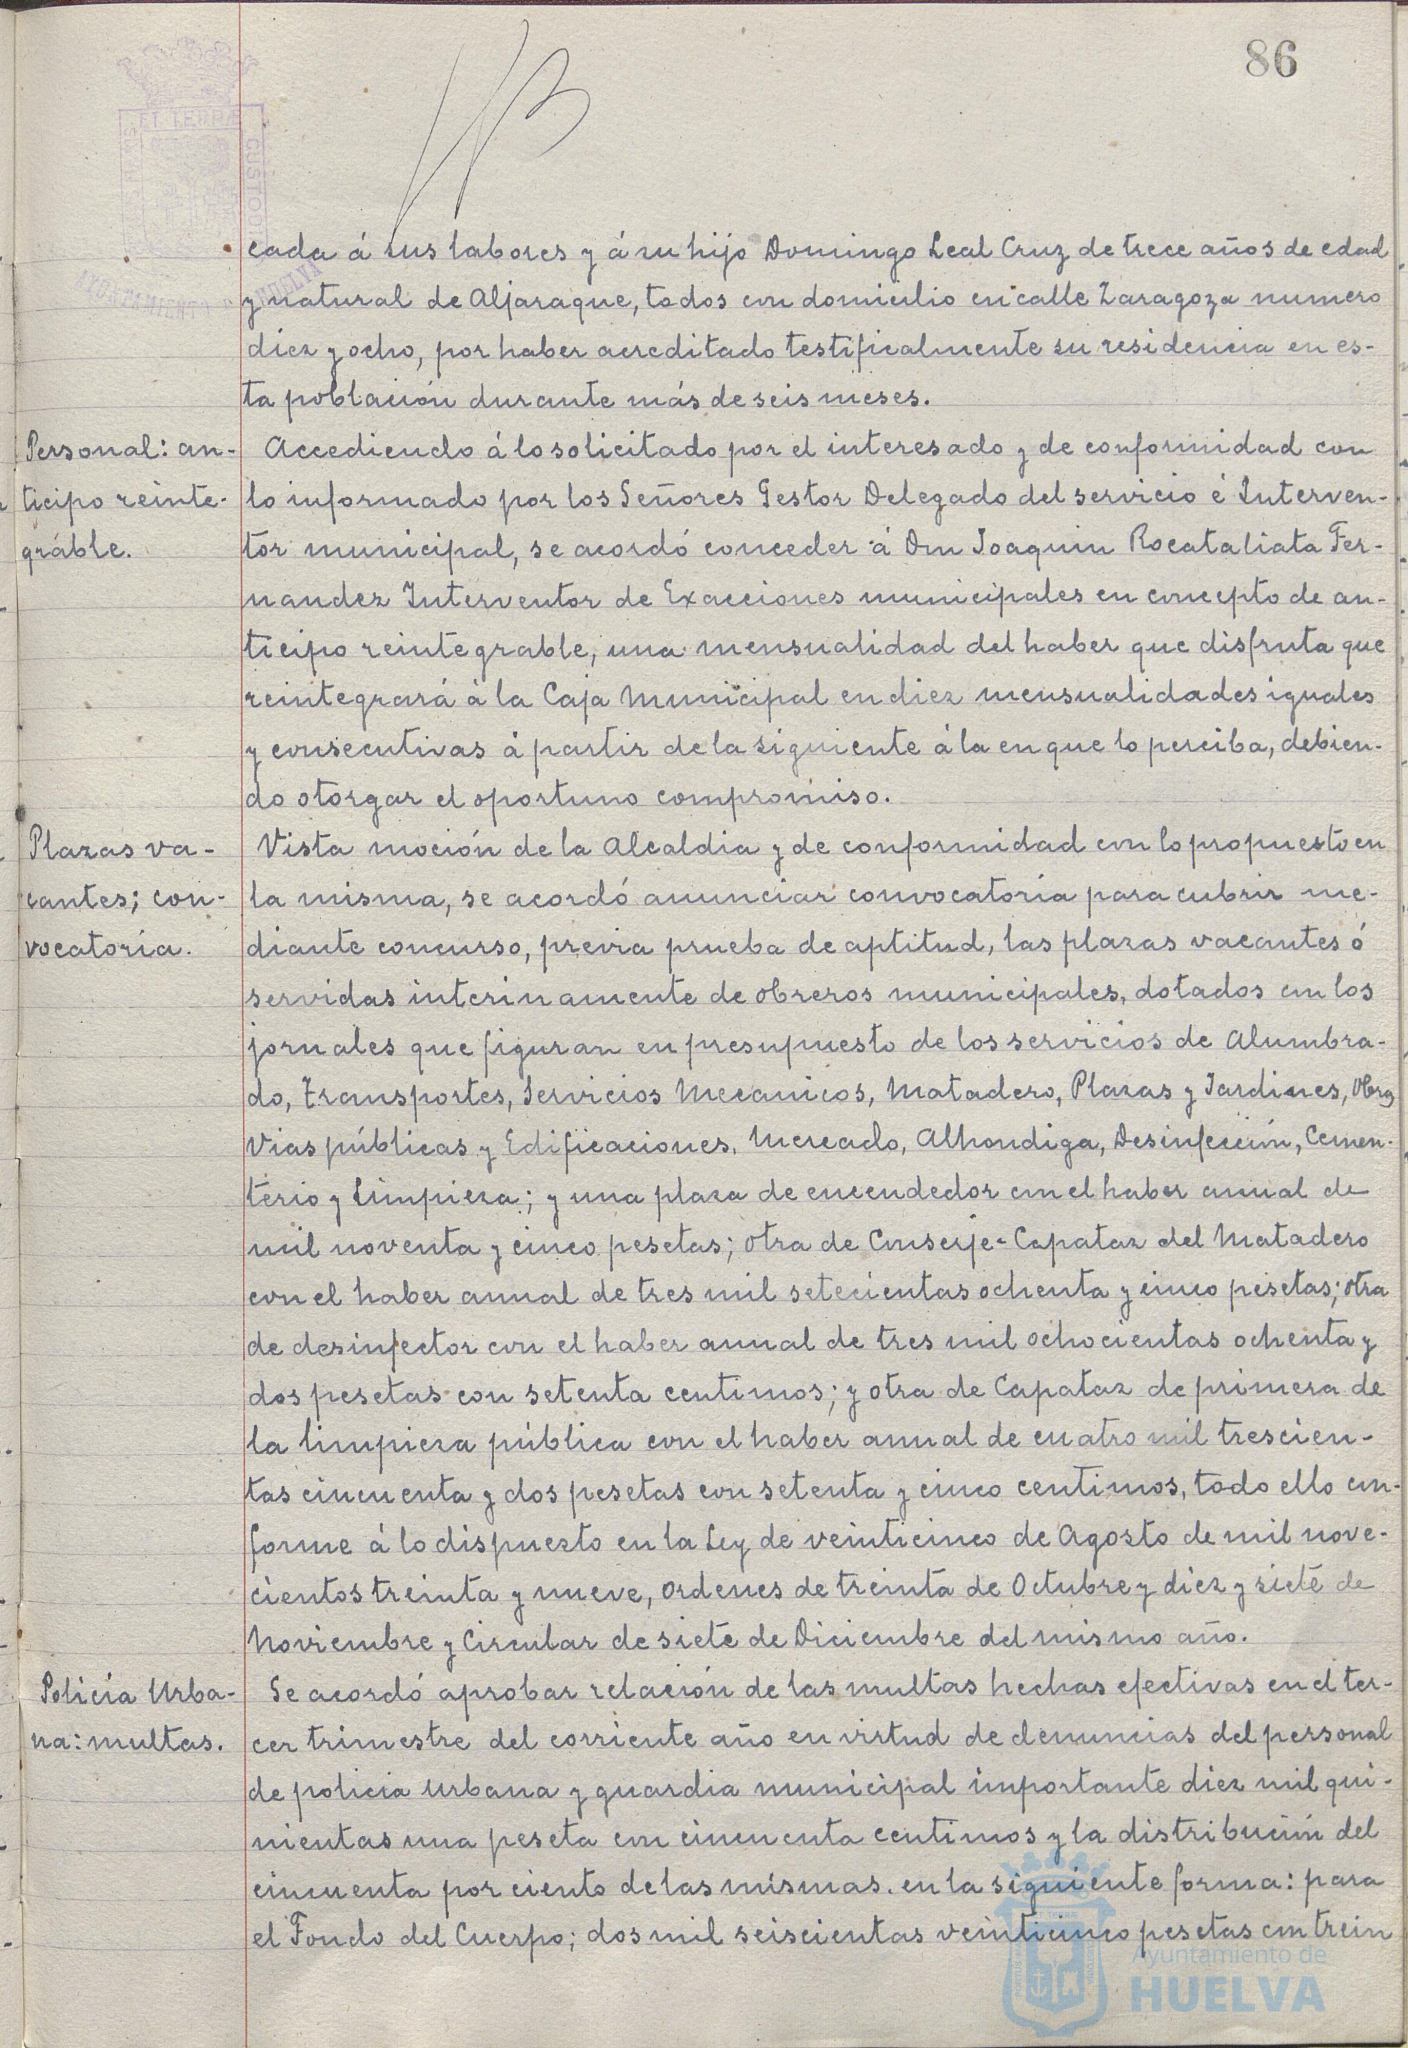 86
cada á sus labores y á su hijo Domingo Leal Cruz de trece años de edad
y natural de Aljaraque, todos con domicilio en calle Zaragoza numero
diez y ocho, por haber acreditado testificalmente su residencia en es-
ta población durante más de seis meses.
Personal: an-
ticipo reinte-
gráble.
Accediendo á lo solicitado por el interesado y de conformidad con
lo informado por los Señores Gestor Delegado del servicio é Interven-
tor municipal, se acordó conceder á Don Joaquin Rocataliata Fer-
nandez Interventor de Exacciones municipales en concepto de an-
ticipo reintegrable, una mensualidad del haber que disfruta que
reintegrará á la Caja Municipal en diez mensualidades iguales
y consecutivas á partir de la siguiente á la en que lo perciba, debien-
do otorgar el oportuno compromiso.
Plazas va-
cantes; con-
vocatoria.
Vista moción de la Alcaldia y de conformidad con lo propuesto en
la misma, se acordó anunciar convocatoria para cubrir me-
diante concurso, previa prueba de aptitud, las plazas vacantes ó
servidas interinamente de obreros municipales, dotados con los
jornales que figuran en presupuesto de los servicios de Alumbra-
do, Transportes, Servicios Mecanicos, Matadero, Plazas y Jardines, Obras
Vias públicas y Edificaciones, Mercado, Alhondiga, Desinfección, Cemen-
terio y Limpieza; y una plaza de encendedor con el haber anual de
mil noventa y cinco pesetas; otra de Conserje-Capataz del Matadero
con el haber anual de tres mil setecientas ochenta y cinco pesetas; otra
de desinfector con el haber anual de tres mil ochocientas ochenta y
dos pesetas con setenta centimos; y otra de Capataz de primera de
la limpieza pública con el haber anual de cuatro mil trescien-
tas cincuenta y dos pesetas con setenta y cinco centimos, todo ello con-
forme á lo dispuesto en la Ley de veinticinco de Agosto de mil nove-
cientos treinta y nueve, Ordenes de treinta de Octubre y diez y siete de
Noviembre y Circular de siete de Diciembre del mismo año.
Policía Urba-
na: multas.
Se acordó aprobar relación de las multas hechas efectivas en el ter-
cer trimestre del corriente año en virtud de denuncias del personal
de policia urbana y guardia municipal importante diez mil qui-
nientas una peseta con cincuenta centimos y la distribución del
cincuenta por ciento de las mismas. en la siguiente forma: para
el Fondo del Cuerpo; dos mil seiscientas veinticinco pesetas con trein
Ayuntamiento de
HUELVA